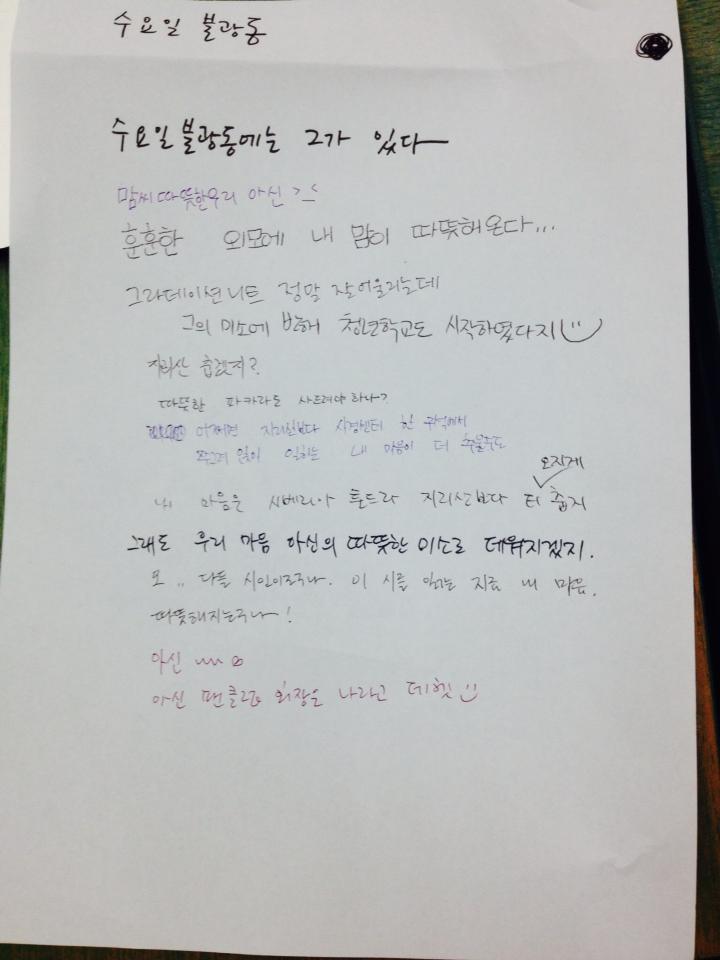 수요일 불광동
수요일 불광동에는 그가 있다
맘씨 따뜻한 우리 아신 >_<
훈훈한 외모에 내 맘이 따뜻해온다...
그라데이션니트 정말 잘어울리는데
그의 미소에 반해 청년학교도 시작하였다지
지리산 춥겠지?
따뜻한 파카라도 사드려야 하나?
어쩌면 지리산보다 시경센터 한 구석에서
쭈그려 앉아 일하는 내 마음이 더 추울수도
오지게
내 마음은 시베리아 툰드라 지리산보다 더 춥지
그래도 우리 마음 아신의 따뜻한 미소로 데워지겠지.
오.. 다들 시인이로구나. 이 시를 읽는 지금 내 마음.
따뜻해지는구나!
아신
아신 팬클럽 회장은 나라고 데헷